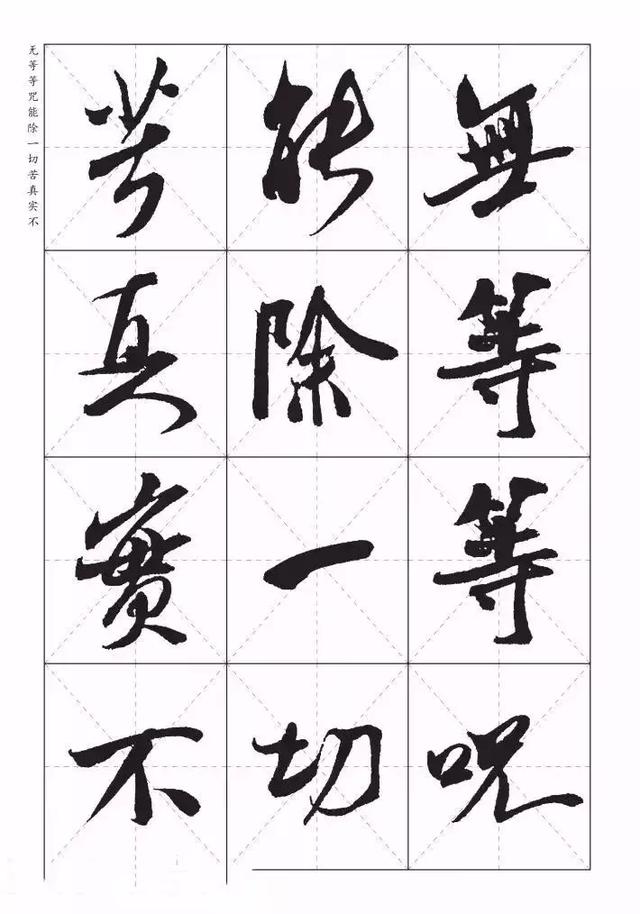 無等等咒
能除一切
苦真實不
无等等咒能除一切苦真实不